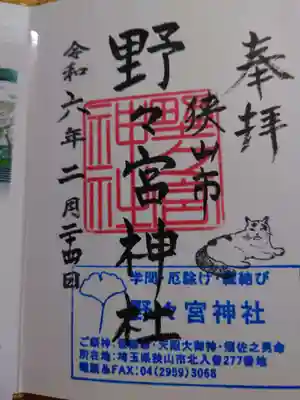 奉拝
狭山市
野々宮神社
令和六年二月二十四日
野々宮神社
学問・厄除け・縁結び
野々宮神社
ご祭神:
・天照大御神・須佐之男命
所在地:埼玉県狭山市北入曽277番地
電話&FAX:04(2959)3068